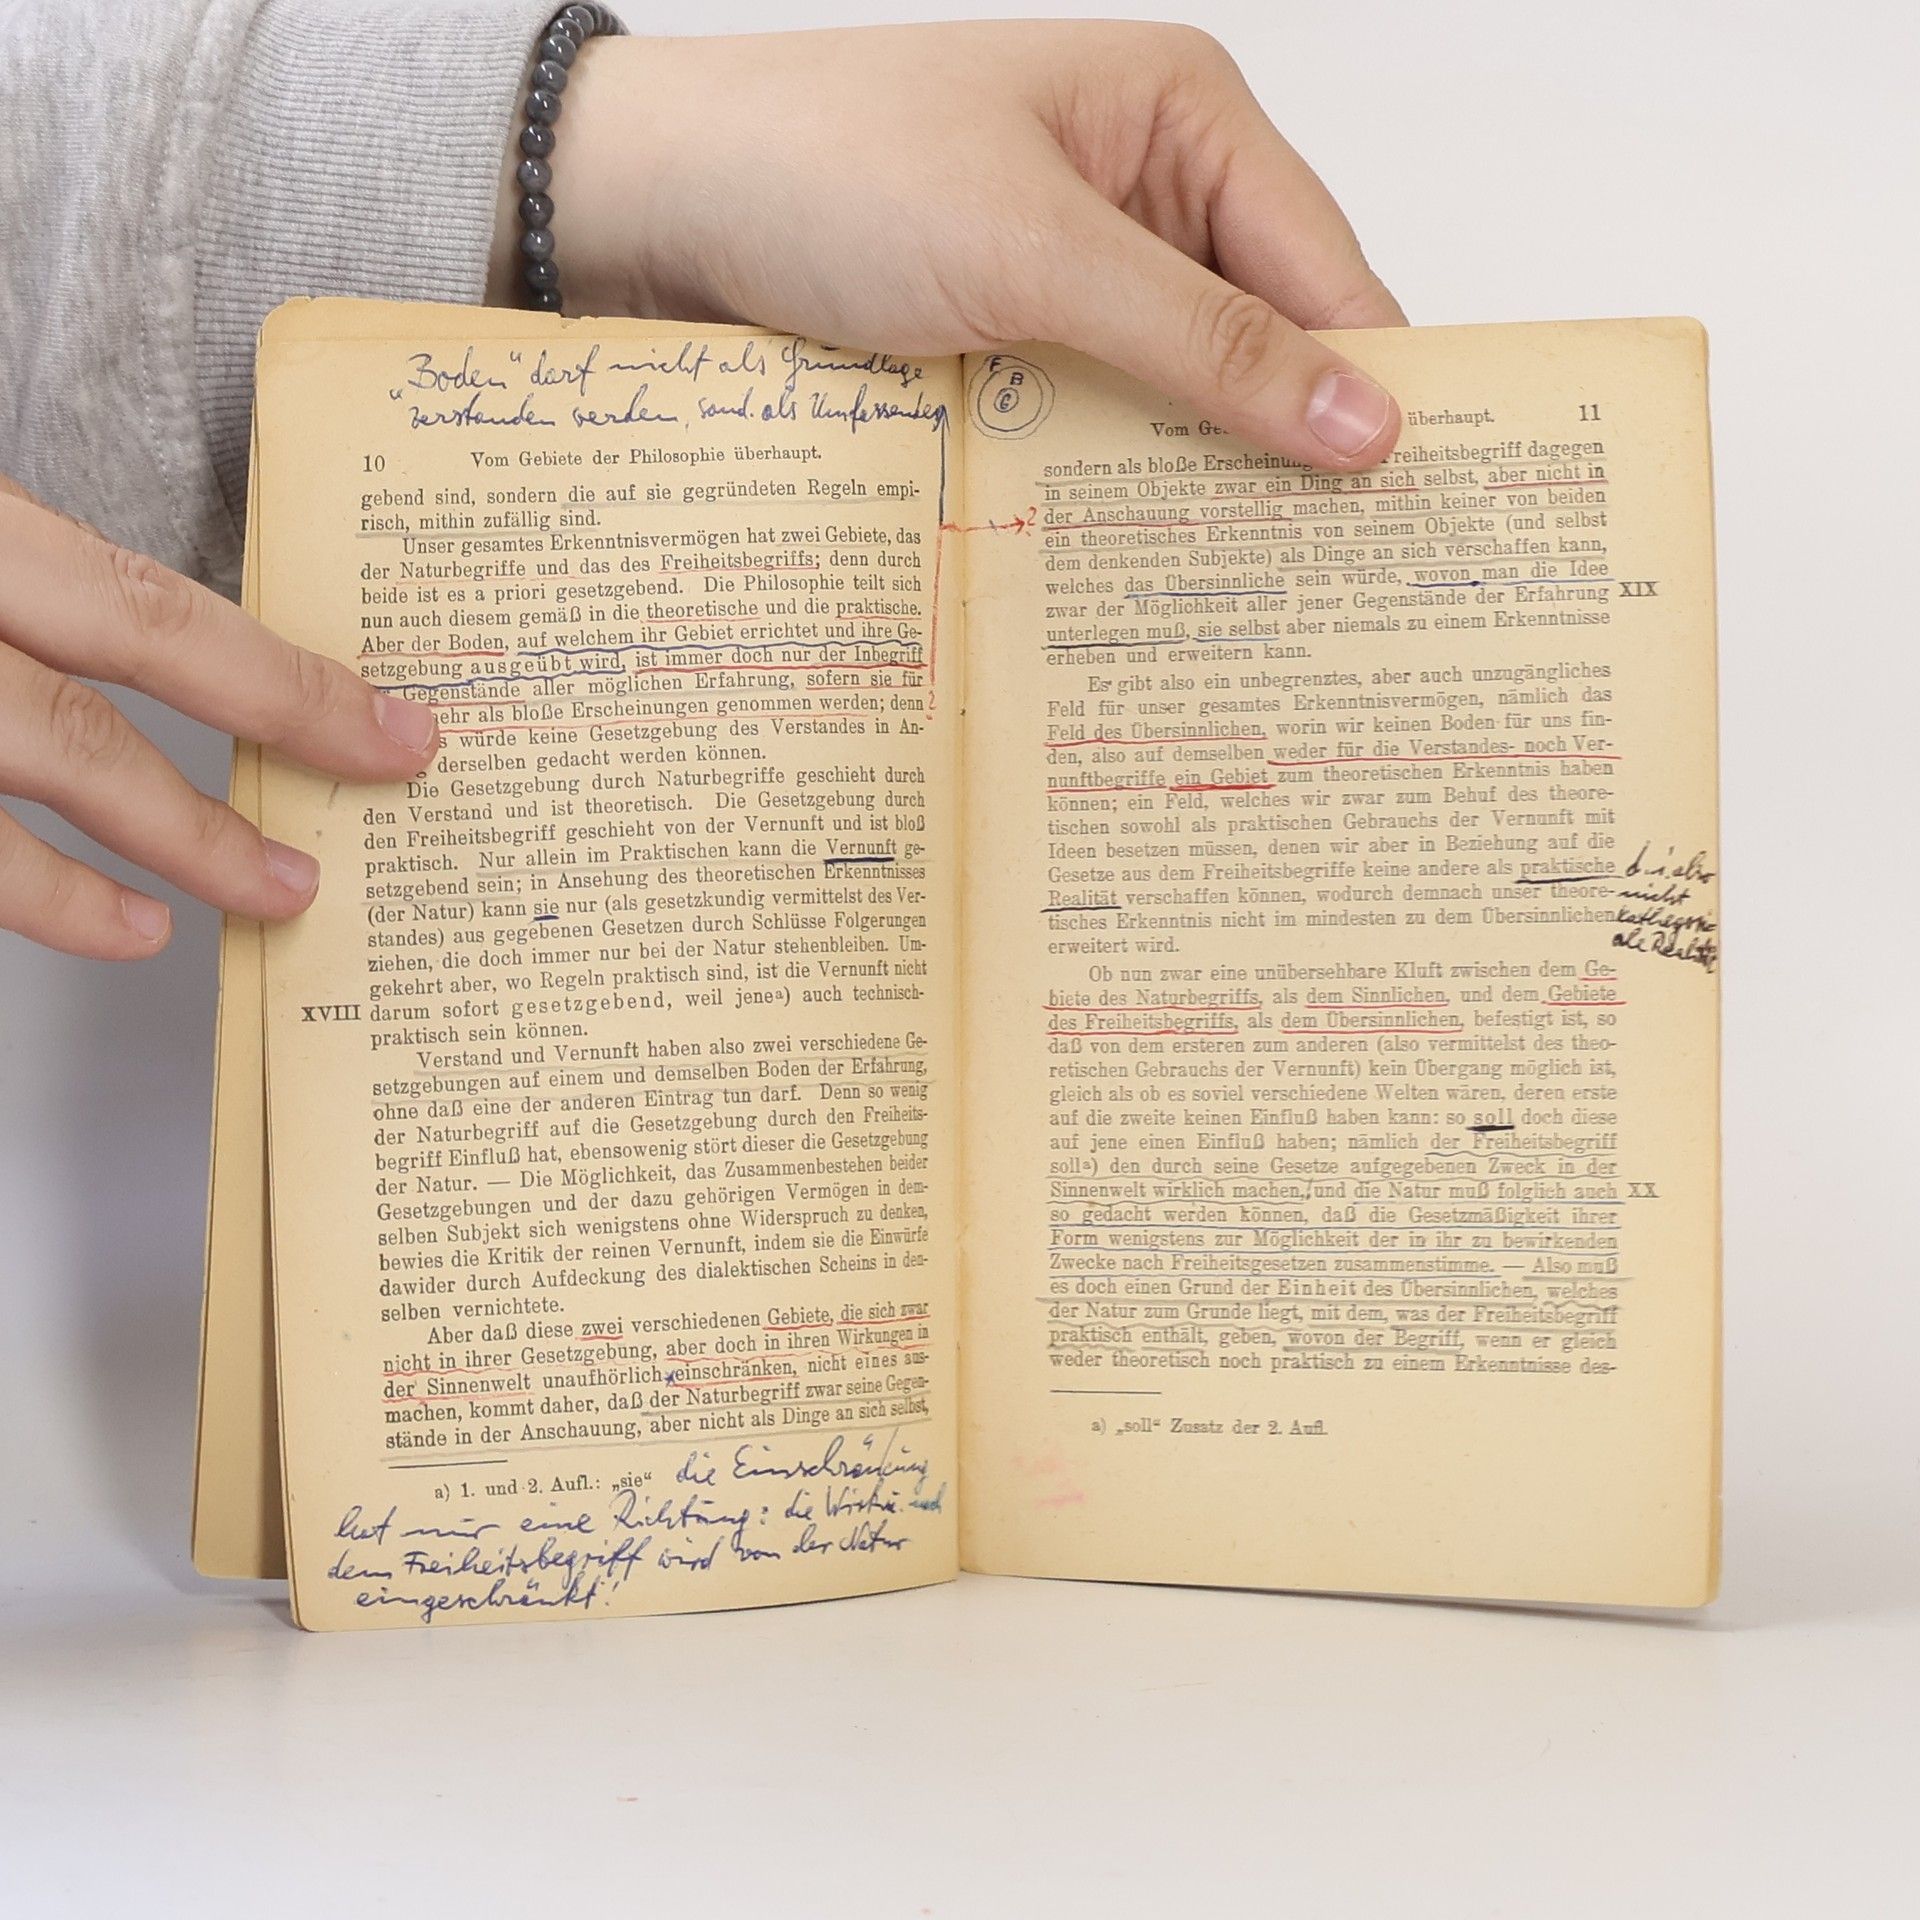 „Boden“ darf nicht als Grundlage
verstanden werden, sond. als Umfassendes
10 Vom Gebiete der Philosophie überhaupt.
gebend sind, sondern die auf sie gegründeten Regeln empi-
risch, mithin zufällig sind.
Unser gesamtes Erkenntnisvermögen hat zwei Gebiete, das
der Naturbegriffe und das des Freiheitsbegriffs; denn durch
beide ist es a priori gesetzgebend. Die Philosophie teilt sich
nun auch diesem gemäß in die theoretische und die praktische.
Aber der Boden, auf welchem ihr Gebiet errichtet und ihre Ge-
setzgebung ausgeübt wird, ist immer doch nur der Inbegriff
Gegenstände aller möglichen Erfahrung, sofern sie für
mehr als bloße Erscheinungen genommen werden; denn
2
s würde keine Gesetzgebung des Verstandes in An-
g derselben gedacht werden können.
Die Gesetzgebung durch Naturbegriffe geschieht durch
den Verstand und ist theoretisch. Die Gesetzgebung durch
den Freiheitsbegriff geschieht von der Vernunft und ist bloß
praktisch. Nur allein im Praktischen kann die Vernunft ge-
setzgebend sein; in Ansehung des theoretischen Erkenntnisses
(der Natur) kann sie nur (als gesetzkundig vermittelst des Ver-
standes) aus gegebenen Gesetzen durch Schlüsse Folgerungen
ziehen, die doch immer nur bei der Natur stehenbleiben. Um-
gekehrt aber, wo Regeln praktisch sind, ist die Vernunft nicht
XVIII darum sofort gesetzgebend, weil jene a) auch technisch-
praktisch sein können.
Verstand und Vernunft haben also zwei verschiedene Ge-
setzgebungen auf einem und demselben Boden der Erfahrung,
ohne daß eine der anderen Eintrag tun darf. Denn so wenig
der Naturbegriff auf die Gesetzgebung durch den Freiheits-
begriff Einfluß hat, ebensowenig stört dieser die Gesetzgebung
der Natur. — Die Möglichkeit, das Zusammenbestehen beider
Gesetzgebungen und der dazu gehörigen Vermögen in dem-
selben Subjekt sich wenigstens ohne Widerspruch zu denken,
bewies die Kritik der reinen Vernunft, indem sie die Einwürfe
dawider durch Aufdeckung des dialektischen Scheins in den-
selben vernichtete.
Aber daß diese zwei verschiedenen Gebiete, die sich zwar
nicht in ihrer Gesetzgebung, aber doch in ihren Wirkungen in
der Sinnenwelt unaufhörlich einschränken, nicht eines aus-
machen, kommt daher, daß der Naturbegriff zwar seine Gegen-
stände in der Anschauung, aber nicht als Dinge an sich selbst,
a) 1. und 2. Aufl.: „sie“
die Einschränkung
hat nur eine Richtung: die
dem Freiheitsbegriff wird von der Natur
eingeschränkt!
F
B
G
Vom Ge überhaupt. 11
sondern als bloße Erscheinung Freiheitsbegriff dagegen
in seinem Objekte zwar ein Ding an sich selbst, aber nicht in
2 der Anschauung vorstellig machen, mithin keiner von beiden
ein theoretisches Erkenntnis von seinem Objekte (und selbst
dem denkenden Subjekte) als Dinge an sich verschaffen kann,
welches das Übersinnliche sein würde, wovon man die Idee
zwar der Möglichkeit aller jener Gegenstände der Erfahrung XIX
unterlegen muß, sie selbst aber niemals zu einem Erkenntnisse
erheben und erweitern kann.
Es gibt also ein unbegrenztes, aber auch unzugängliches
Feld für unser gesamtes Erkenntnisvermögen, nämlich das
Feld des Übersinnlichen, worin wir keinen Boden für uns fin-
den, also auf demselben weder für die Verstandes- noch Ver-
nunftbegriffe ein Gebiet zum theoretischen Erkenntnis haben
können; ein Feld, welches wir zwar zum Behuf des theore-
tischen sowohl als praktischen Gebrauchs der Vernunft mit
Ideen besetzen müssen, denen wir aber in Beziehung auf die
Gesetze aus dem Freiheitsbegriffe keine andere als praktische
Realität verschaffen können, wodurch demnach unser theore-
tisches Erkenntnis nicht im mindesten zu dem Übersinnlichen
erweitert wird.
d. i. also
nicht
kathegori-
ale Realität
Ob nun zwar eine unübersehbare Kluft zwischen dem Ge-
biete des Naturbegriffs, als dem Sinnlichen, und dem Gebiete
des Freiheitsbegriffs, als dem Übersinnlichen, befestigt ist, so
daß von dem ersteren zum anderen (also vermittelst des theo-
retischen Gebrauchs der Vernunft) kein Übergang möglich ist,
gleich als ob es soviel verschiedene Welten wären, deren erste
auf die zweite keinen Einfluß haben kann: so soll doch diese
auf jene einen Einfluß haben; nämlich der Freiheitsbegriff
soll a) den durch seine Gesetze aufgegebenen Zweck in der
Sinnenwelt wirklich machen, und die Natur muß folglich auch XX
so gedacht werden können, daß die Gesetzmäßigkeit ihrer
Form wenigstens zur Möglichkeit der in ihr zu bewirkenden
Zwecke nach Freiheitsgesetzen zusammenstimme. — Also muß
es doch einen Grund der Einheit des Übersinnlichen, welches
der Natur zum Grunde liegt, mit dem, was der Freiheitsbegriff
praktisch enthält, geben, wovon der Begriff, wenn er gleich
weder theoretisch noch praktisch zu einem Erkenntnisse des-
a) „soll“ Zusatz der 2. Aufl.